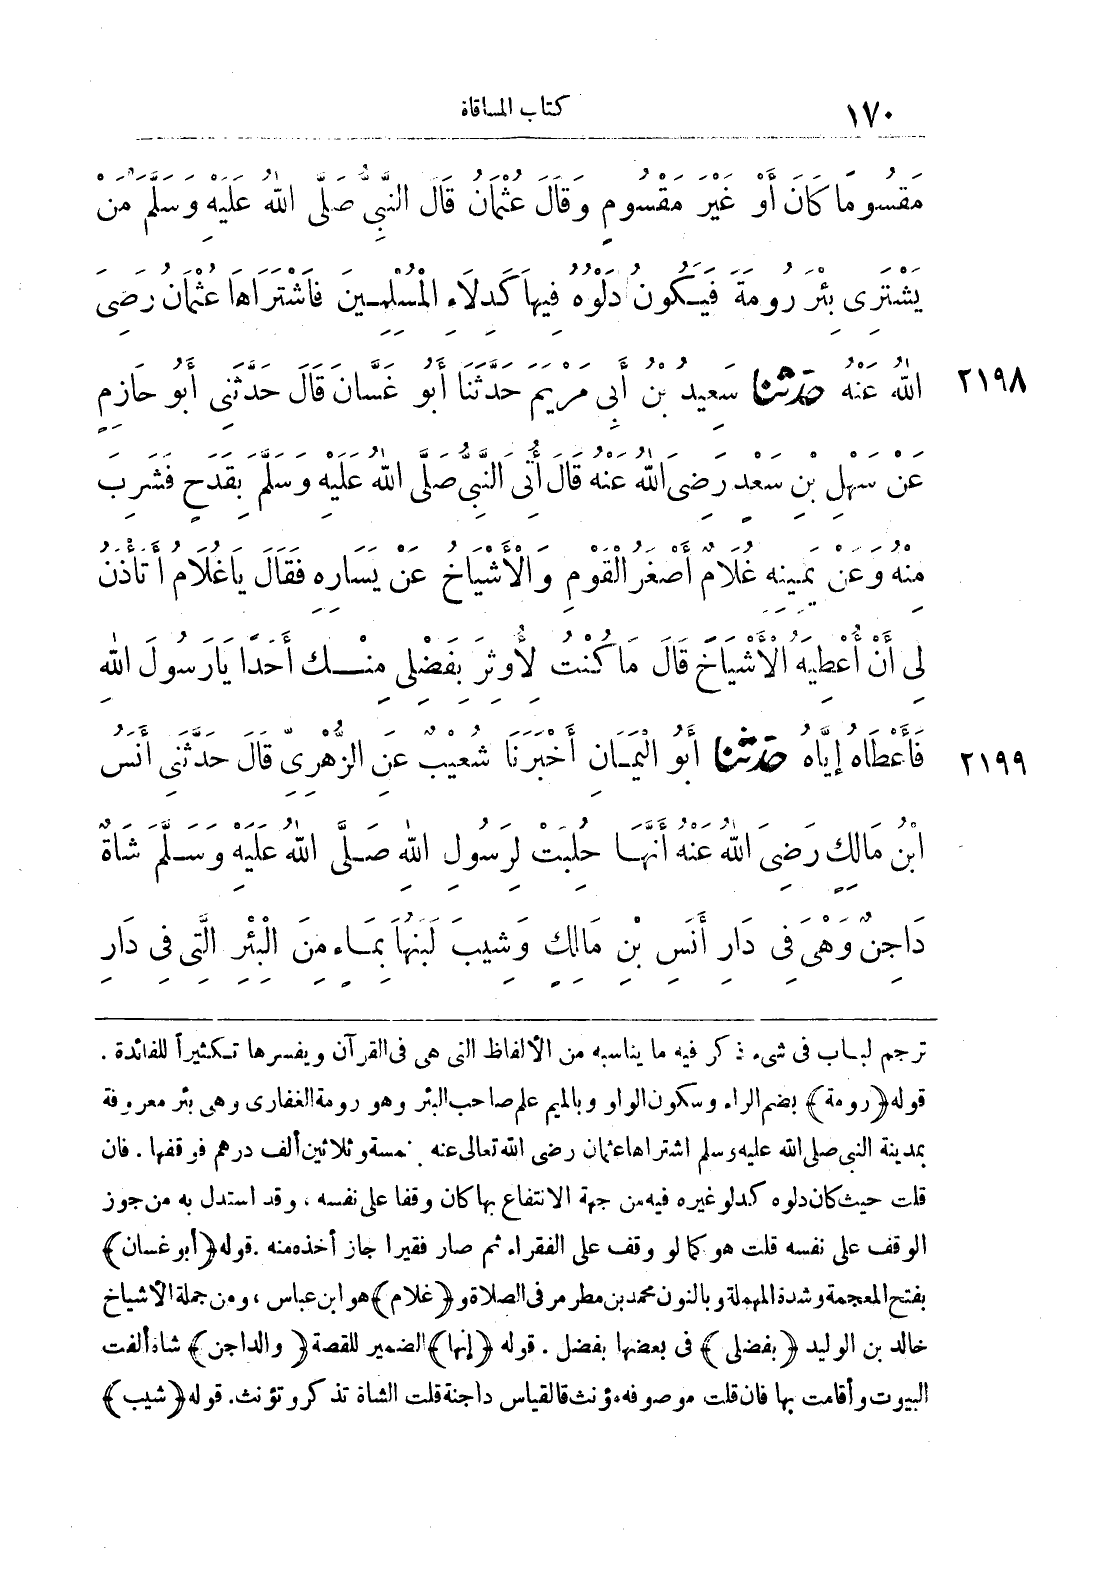 ١٧٠ كتاب المساقاة
مَقْسُومًا كَانَ أَوْ غَيْرَ مَقْسُومٍ وَقَالَ عُثْمَانُ قَالَ النَّبِيُّ صَلَّى اللهُ عَلَيْهِ وَسَلَّمَ مَنْ
يَشْتَرِى بِئْرَ رُومَةَ فَيَكُونُ دَلْوُهُ فِيهَا كَدِلَاءِ الْمُسْلِمِينَ فَاشْتَرَاهَا عُثْمَانُ رَضِىَ
٢١٩٨ اللهُ عَنْهُ حَدَّثَنَا سَعِيدُ بْنُ أَبِى مَرْيَمَ حَدَّثَنَا أَبُو غَسَّانَ قَالَ حَدَّثَنِى أَبُو حَازِمٍ
عَنْ سَهْلِ بْنِ سَعْدٍ رَضِىَ اللهُ عَنْهُ قَالَ أُتِىَ النَّبِيُّ صَلَّى اللهُ عَلَيْهِ وَسَلَّمَ بِقَدَحٍ فَشَرِبَ
مِنْهُ وَعَنْ يَمِينِهِ غُلَامٌ أَصْغَرُ الْقَوْمِ وَالْأَشْيَاخُ عَنْ يَسَارِهِ فَقَالَ يَا غُلَامُ أَتَأْذَنُ
لِى أَنْ أُعْطِيَهُ الْأَشْيَاخَ قَالَ مَا كُنْتُ لِأُوثِرَ بِفَضْلِى مِنْكَ أَحَدًا يَا رَسُولَ اللهِ
٢١٩٩ فَأَعْطَاهُ إِيَّاهُ حَدَّثَنَا أَبُو الْيَمَانِ أَخْبَرَنَا شُعَيْبٌ عَنِ الزُّهْرِىِّ قَالَ حَدَّثَنِى أَنَسُ
ابْنُ مَالِكٍ رَضِىَ اللهُ عَنْهُ أَنَّهَا حُلِبَتْ لِرَسُولِ اللهِ صَلَّى اللهُ عَلَيْهِ وَسَلَّمَ شَاةٌ
دَاجِنٌ وَهْىَ فِى دَارِ أَنَسِ بْنِ مَالِكٍ وَشِيبَ لَبَنُهَا بِمَاءٍ مِنَ الْبِئْرِ الَّتِى فِى دَارِ
ترجم لباب فى شىء ذكر فيه ما يناسبه من الألفاظ التى هى فى القرآن ويفسرها تكثيراً للفائدة .
قوله (رومة) بضم الراء وسكون الواو وبالميم علم صاحب البئر وهو رومة الغفارى وهى بئر معروفة
بمدينة النبى صلى الله عليه وسلم اشتراها عثمان رضى الله تعالى عنه بخمسة وثلاثين ألف درهم فوقفها . فان
قلت حيث كان دلوه كدلو غيره فيه من جهة الانتفاع بها كان وقفا على نفسه ، وقد استدل به من جوز
الوقف على نفسه قلت هو كما لو وقف على الفقراء ثم صار فقيرا جاز أخذه منه . قوله (أبو غسان)
بفتح المعجمة وشدة المهملة وبالنون محمد بن مطر مر فى الصلاة و (غلام) هو ابن عباس ، ومن جملة الأشياخ
خالد بن الوليد (بفضلى) فى بعضها بفضل . قوله (إنها) الضمير للقصة (والداجن) شاة ألفت
البيوت وأقامت بها فان قلت موصوفه مؤنث فالقياس داجنة قلت الشاة تذكر وتؤنث. قوله (شيب)